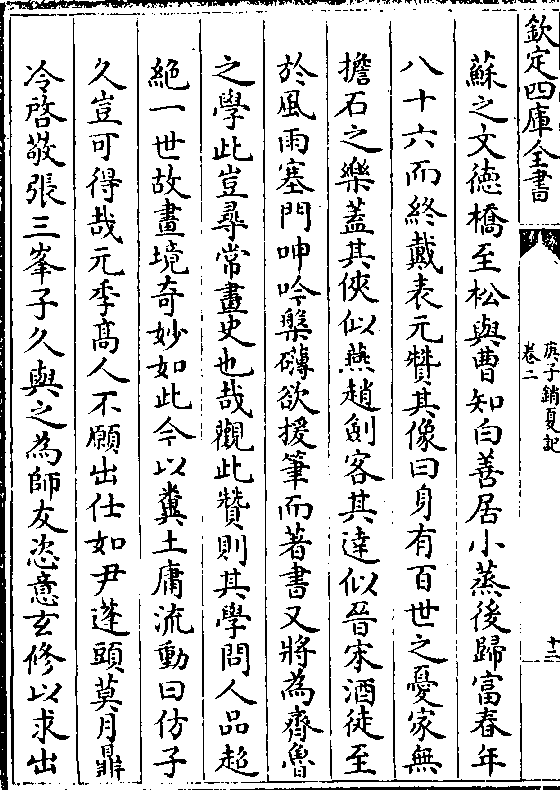 欽定四庫全書
庚子銷夏記
卷二
十三
蘇之文德橋至松與曹知白善居小蒸後歸富春年
八十六而終戴表元贊其像曰身有百世之憂家無
擔石之樂蓋其俠似燕趙劍客其達似晉宋酒徒至
於風雨塞門呻吟槃礴欲援筆而著書又將為齊魯
之學此豈尋常畫史也哉觀此贊則其學問人品超
絕一世故畫境奇妙如此今以糞土庸流動曰仿子
久豈可得哉元季髙人不願出仕如尹蓬頭莫月鼎
冷啓敬張三峯子久與之為師友恣意玄修以求出